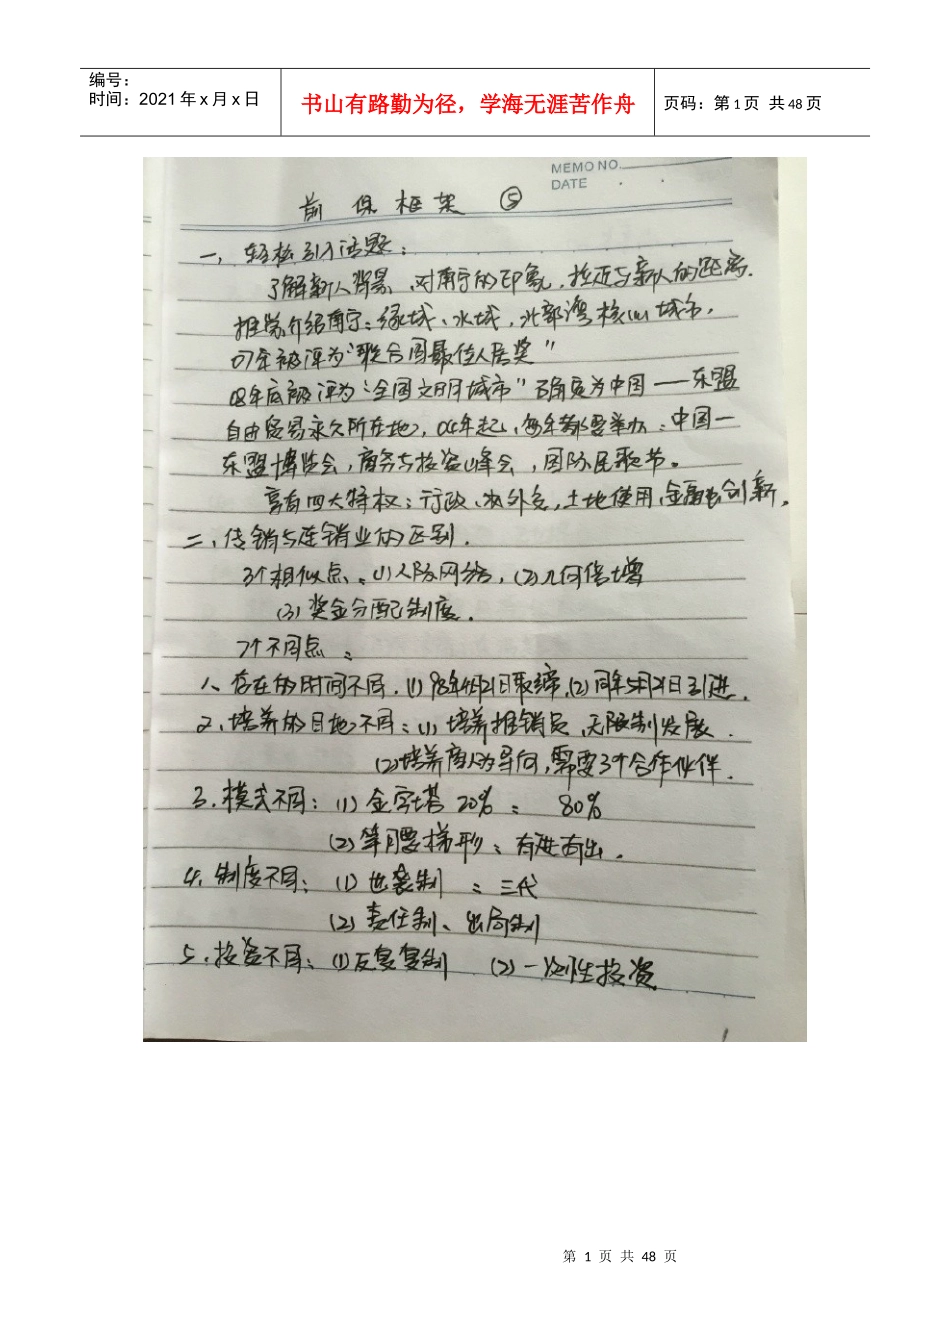 编号：
时间：2021年x月x日
书山有路勤为径，学海无涯苦作舟
页码：第1页 共48页
MEMO NO.
DATE
前保框架 ⑤
一、轻松引入话题：
了解新人背景、对南宁的印象，拉近与新人的距离.
推崇介绍南宁：绿城、水城，北部湾核心城市，
07年被评为“联合国最佳人居奖”
08年底被评为“全国文明城市”确定为中国——东盟
自由贸易永久所在地，04年起，每年都要举办：中国一
东盟博览会，商务与投资峰会，国际民歌节。
享有四大特权：行政、对外包，土地使用，金融创新。
二、传销与连销业的区别.
3个相似点：(1)人际网络，(2)几何倍增
(3)奖金分配制度.
7个不同点：
1、存在的时间不同.(1)98年4月21日取缔，(2)同年5月21日引进.
2、培养的目地不同：(1)培养推销员，无限制发展.
(2)培养商人为导向，需要3个合作伙伴.
3.模式不同：(1)金字塔 20%： 80%
(2)等腰梯形：有进有出.
4、制度不同：(1)世袭制：三代
(2)责任制、出局制
5.投资不同：(1)反复复制 (2)一次性投资
1
第 1 页 共 48 页